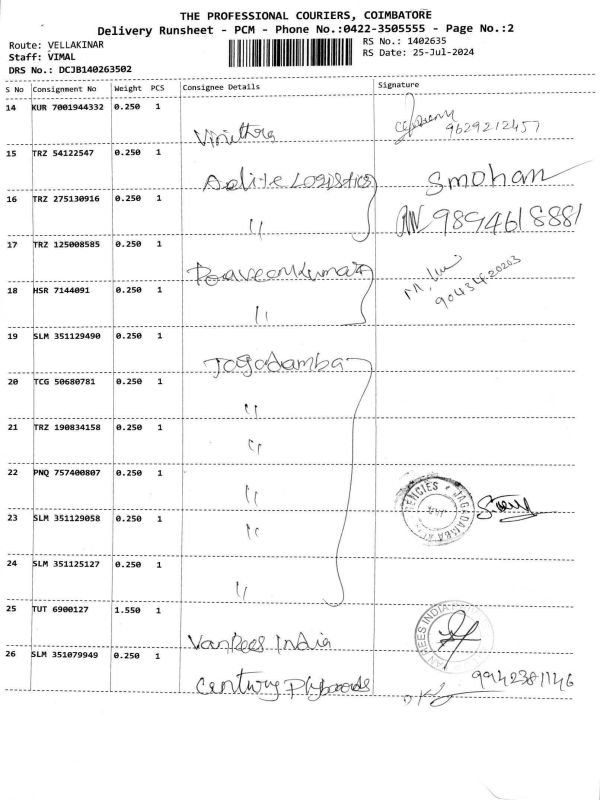 THE PROFESSIONAL COURIERS, COIMBATORE
Delivery Runsheet - PCM - Phone No.:0422-3505555 - Page No.:2
Route: VELLAKINAR
RS No.: 1402635
Staff: VIMAL
RS Date: 25-Jul-2024
DRS No.: DCJB140263502
S No Consignment No Weight PCS Consignee Details Signature
14 KUR 7001944332 0.250 1
Vinithra 9629212457
15 TRZ 54122547 0.250 1
Delite Logistics Smohan
16 TRZ 275130916 0.250 1
" 9894618881
17 TRZ 125008585 0.250 1
Praveenkumar
18 HSR 7144091 0.250 1
" 9043420203
19 SLM 351129490 0.250 1
Jagadamba
20 TCG 50680781 0.250 1
"
21 TRZ 190834158 0.250 1
"
22 PNQ 757400807 0.250 1
" JAGADAMBA AGENCIES
23 SLM 351129058 0.250 1
"
24 SLM 351125127 0.250 1
"
25 TUT 6900127 1.550 1
VanRees India VAN REES INDIA
26 SLM 351079949 0.250 1
Century Plyboards 9942381146